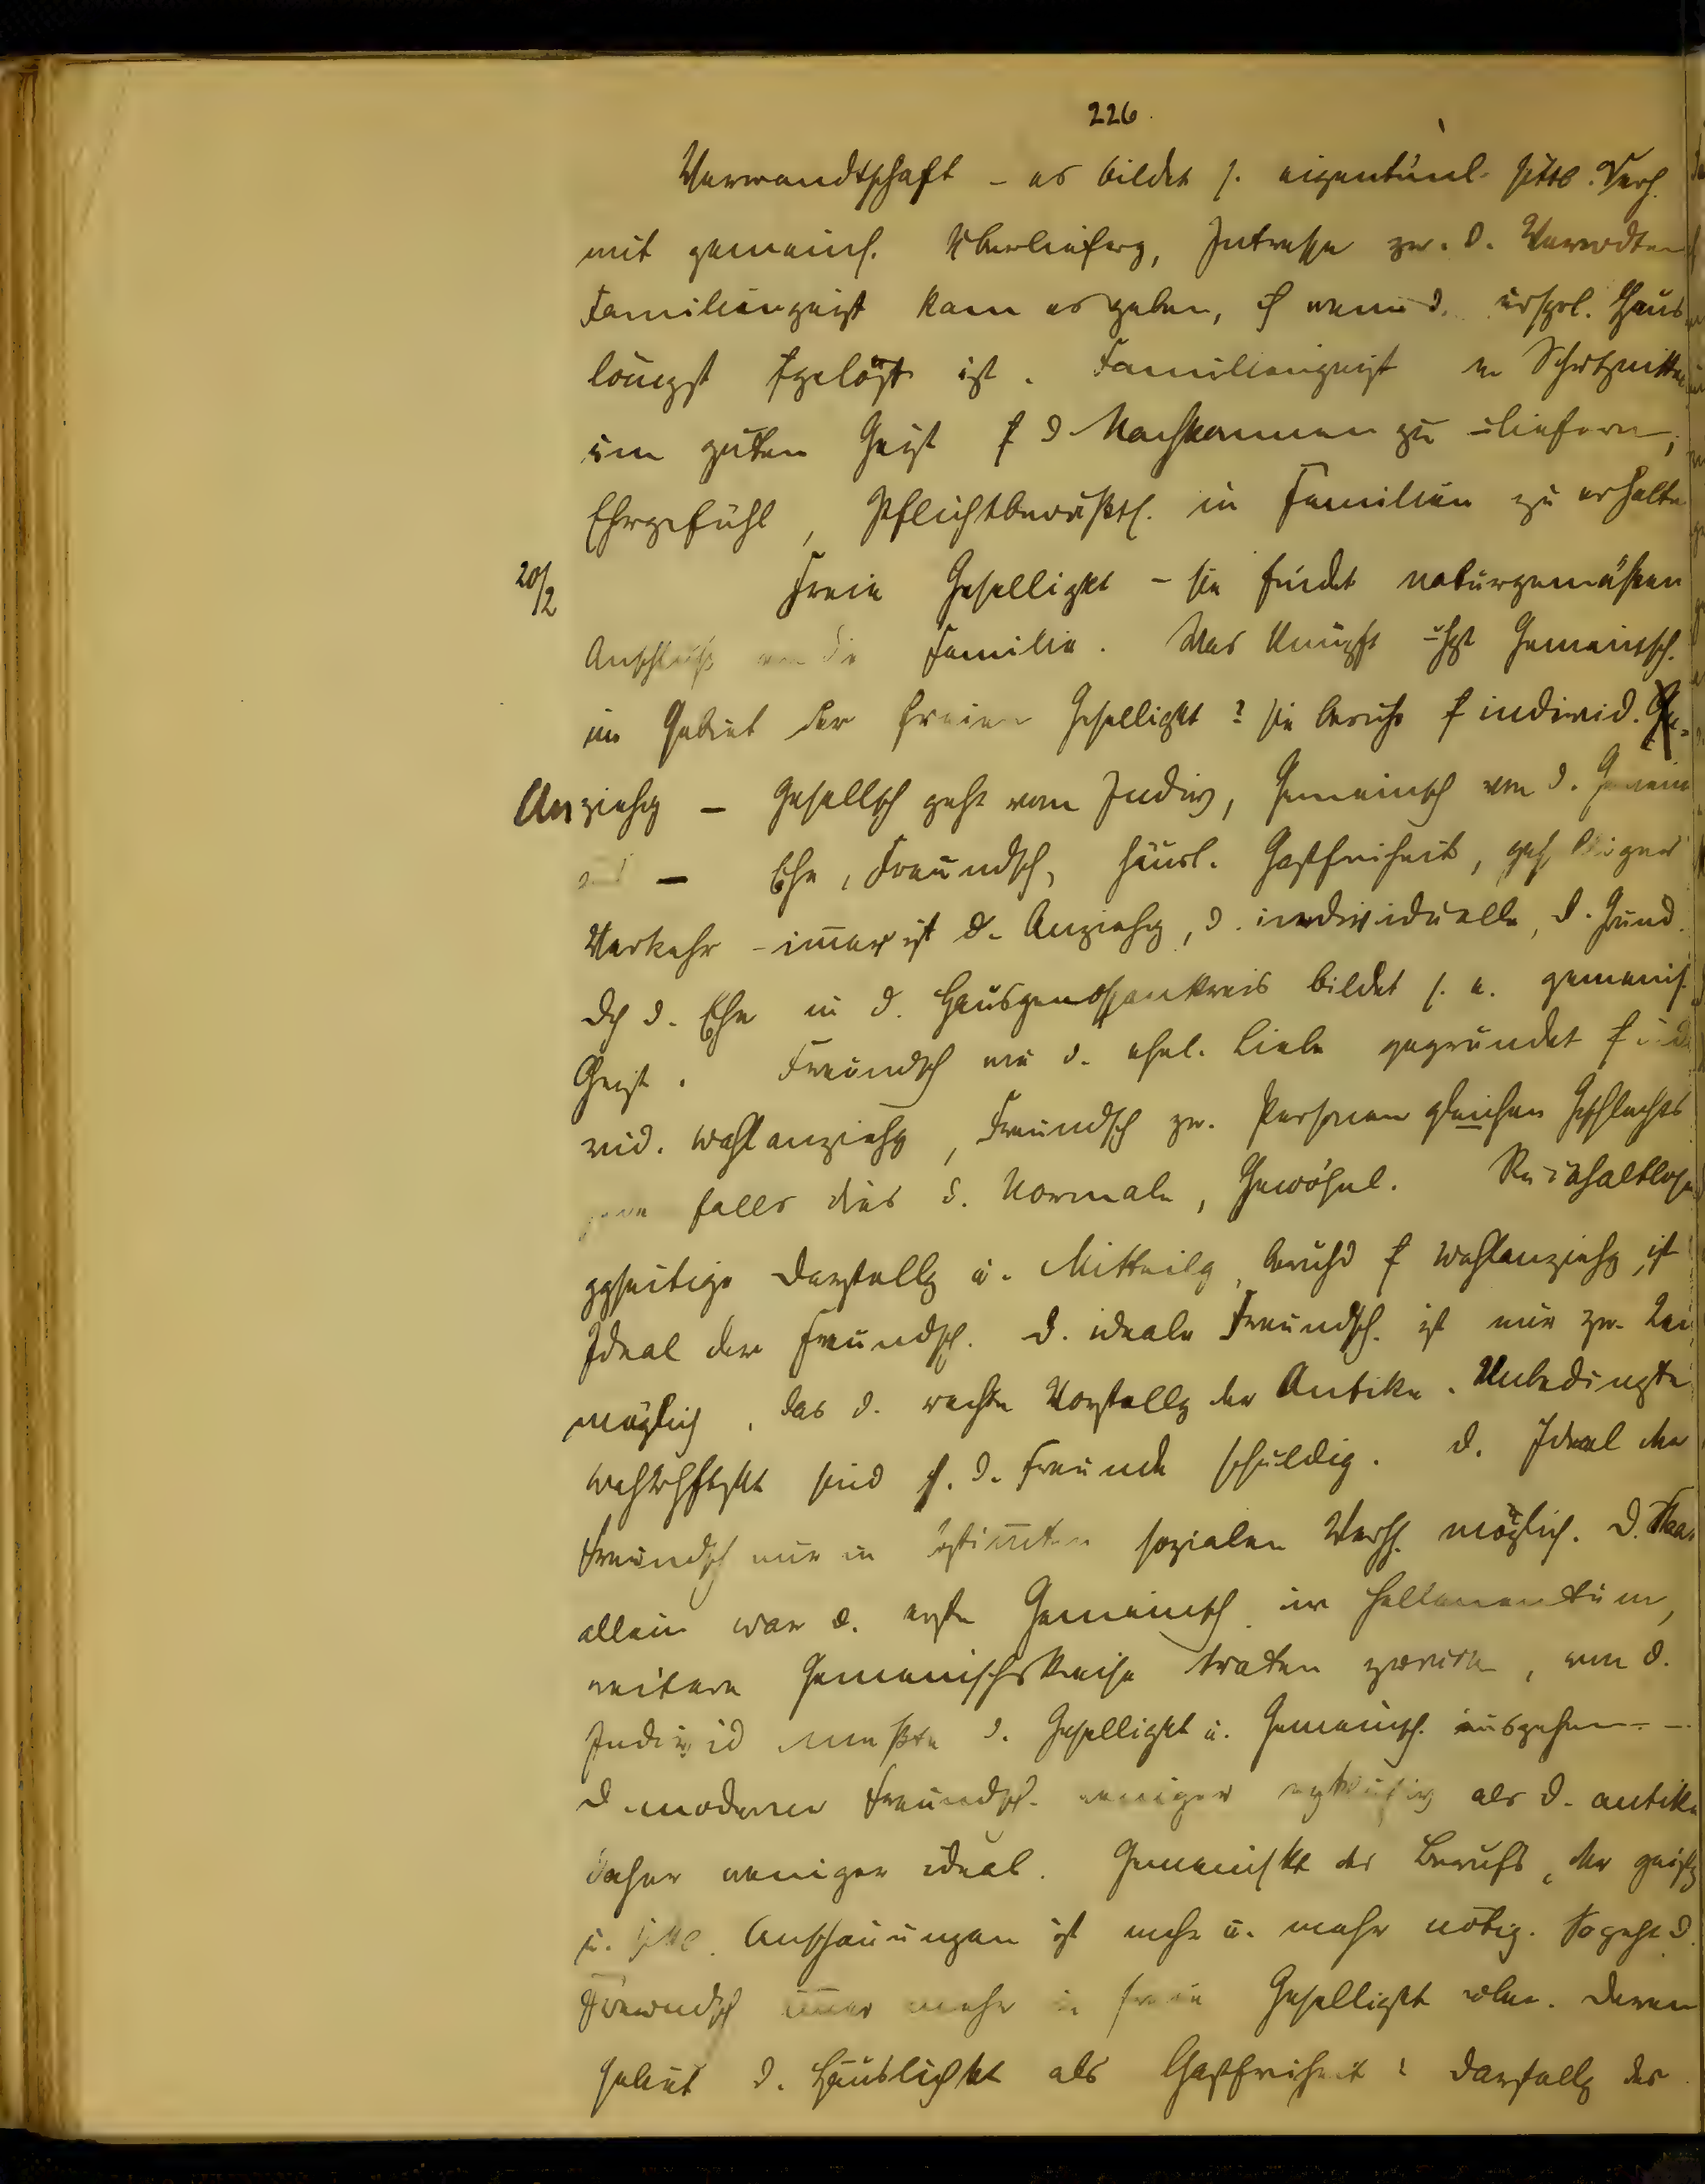 226.
Verwandtschaft – es bildet s. eigentüml. sittl. Verh.
mit gemeins. Überlieferg, Intresse zw. d. Verwdten
Familiengeist kann es geben, ch wenn d. urspl. Haus
längst fgelöst ist. Familiengeist
um guten Geist f d Nachkommen zu ü-liefern,
Ehrgefühl, Pflichtbewußts. in Familien zu erhalte
20/2 Freie Geselligkt – sie findet naturgemäßen
Anschluß an die Familie. Was knüpft Gemeinsch.
im Gebiet der freien Geselligkt? sie beruht f individ.
Anziehg – Gesellsch geht vom Indiv, Gemeinsch von d. Gemein
– Ehe, Freundsch, häusl. Gastfreiheit, geselliger
Verkehr – immer ist d. Anziehg, d. individuelle, d. Grund.
Dch d. Ehe in d. Hausgenossenkreis bildet s. e. gemeins.
Geist. Freundsch wie d. ehel. Liebe gegründet f ind
vid. Wahlanziehg, Freundsch zw. Personen gleichen Geschlechts
falls dies d. Normale, Gewöhnl. Rückhaltlose
ggseitige Darstellg u. Mitteilg, beruhd f Wahlanziehg, ist
Ideal der Freundsch. D. ideale Freundsch. ist nur zw. Zwei
möglich, das d. rechte Vorstellg der Antike. Unbedingte
Wahrhftgkt sind s. d. Freunde schuldig. D. Ideal der
Freundsch nur in bstimmten sozialen Verh. möglich. D. Staa
allein war d. erste Gemeinsch. im Hellenentum,
weitere Gemeinschskreise traten zurück, von d.
Individ mußte d. Geselligkt u. Gemeinsch. ausgehen. –
D. moderne Freundsch. weniger als d. antike
daher weniger ideal. Gemeinskt des Berufs, der geistg
u. sittl. Anschauungen ist mehr u. mehr nötig. So geht d.
Freundsch immer mehr in freie Geselligkt über. Deren
Gebiet d. Häuslichkt als Gastfreiheit: Darstellg der